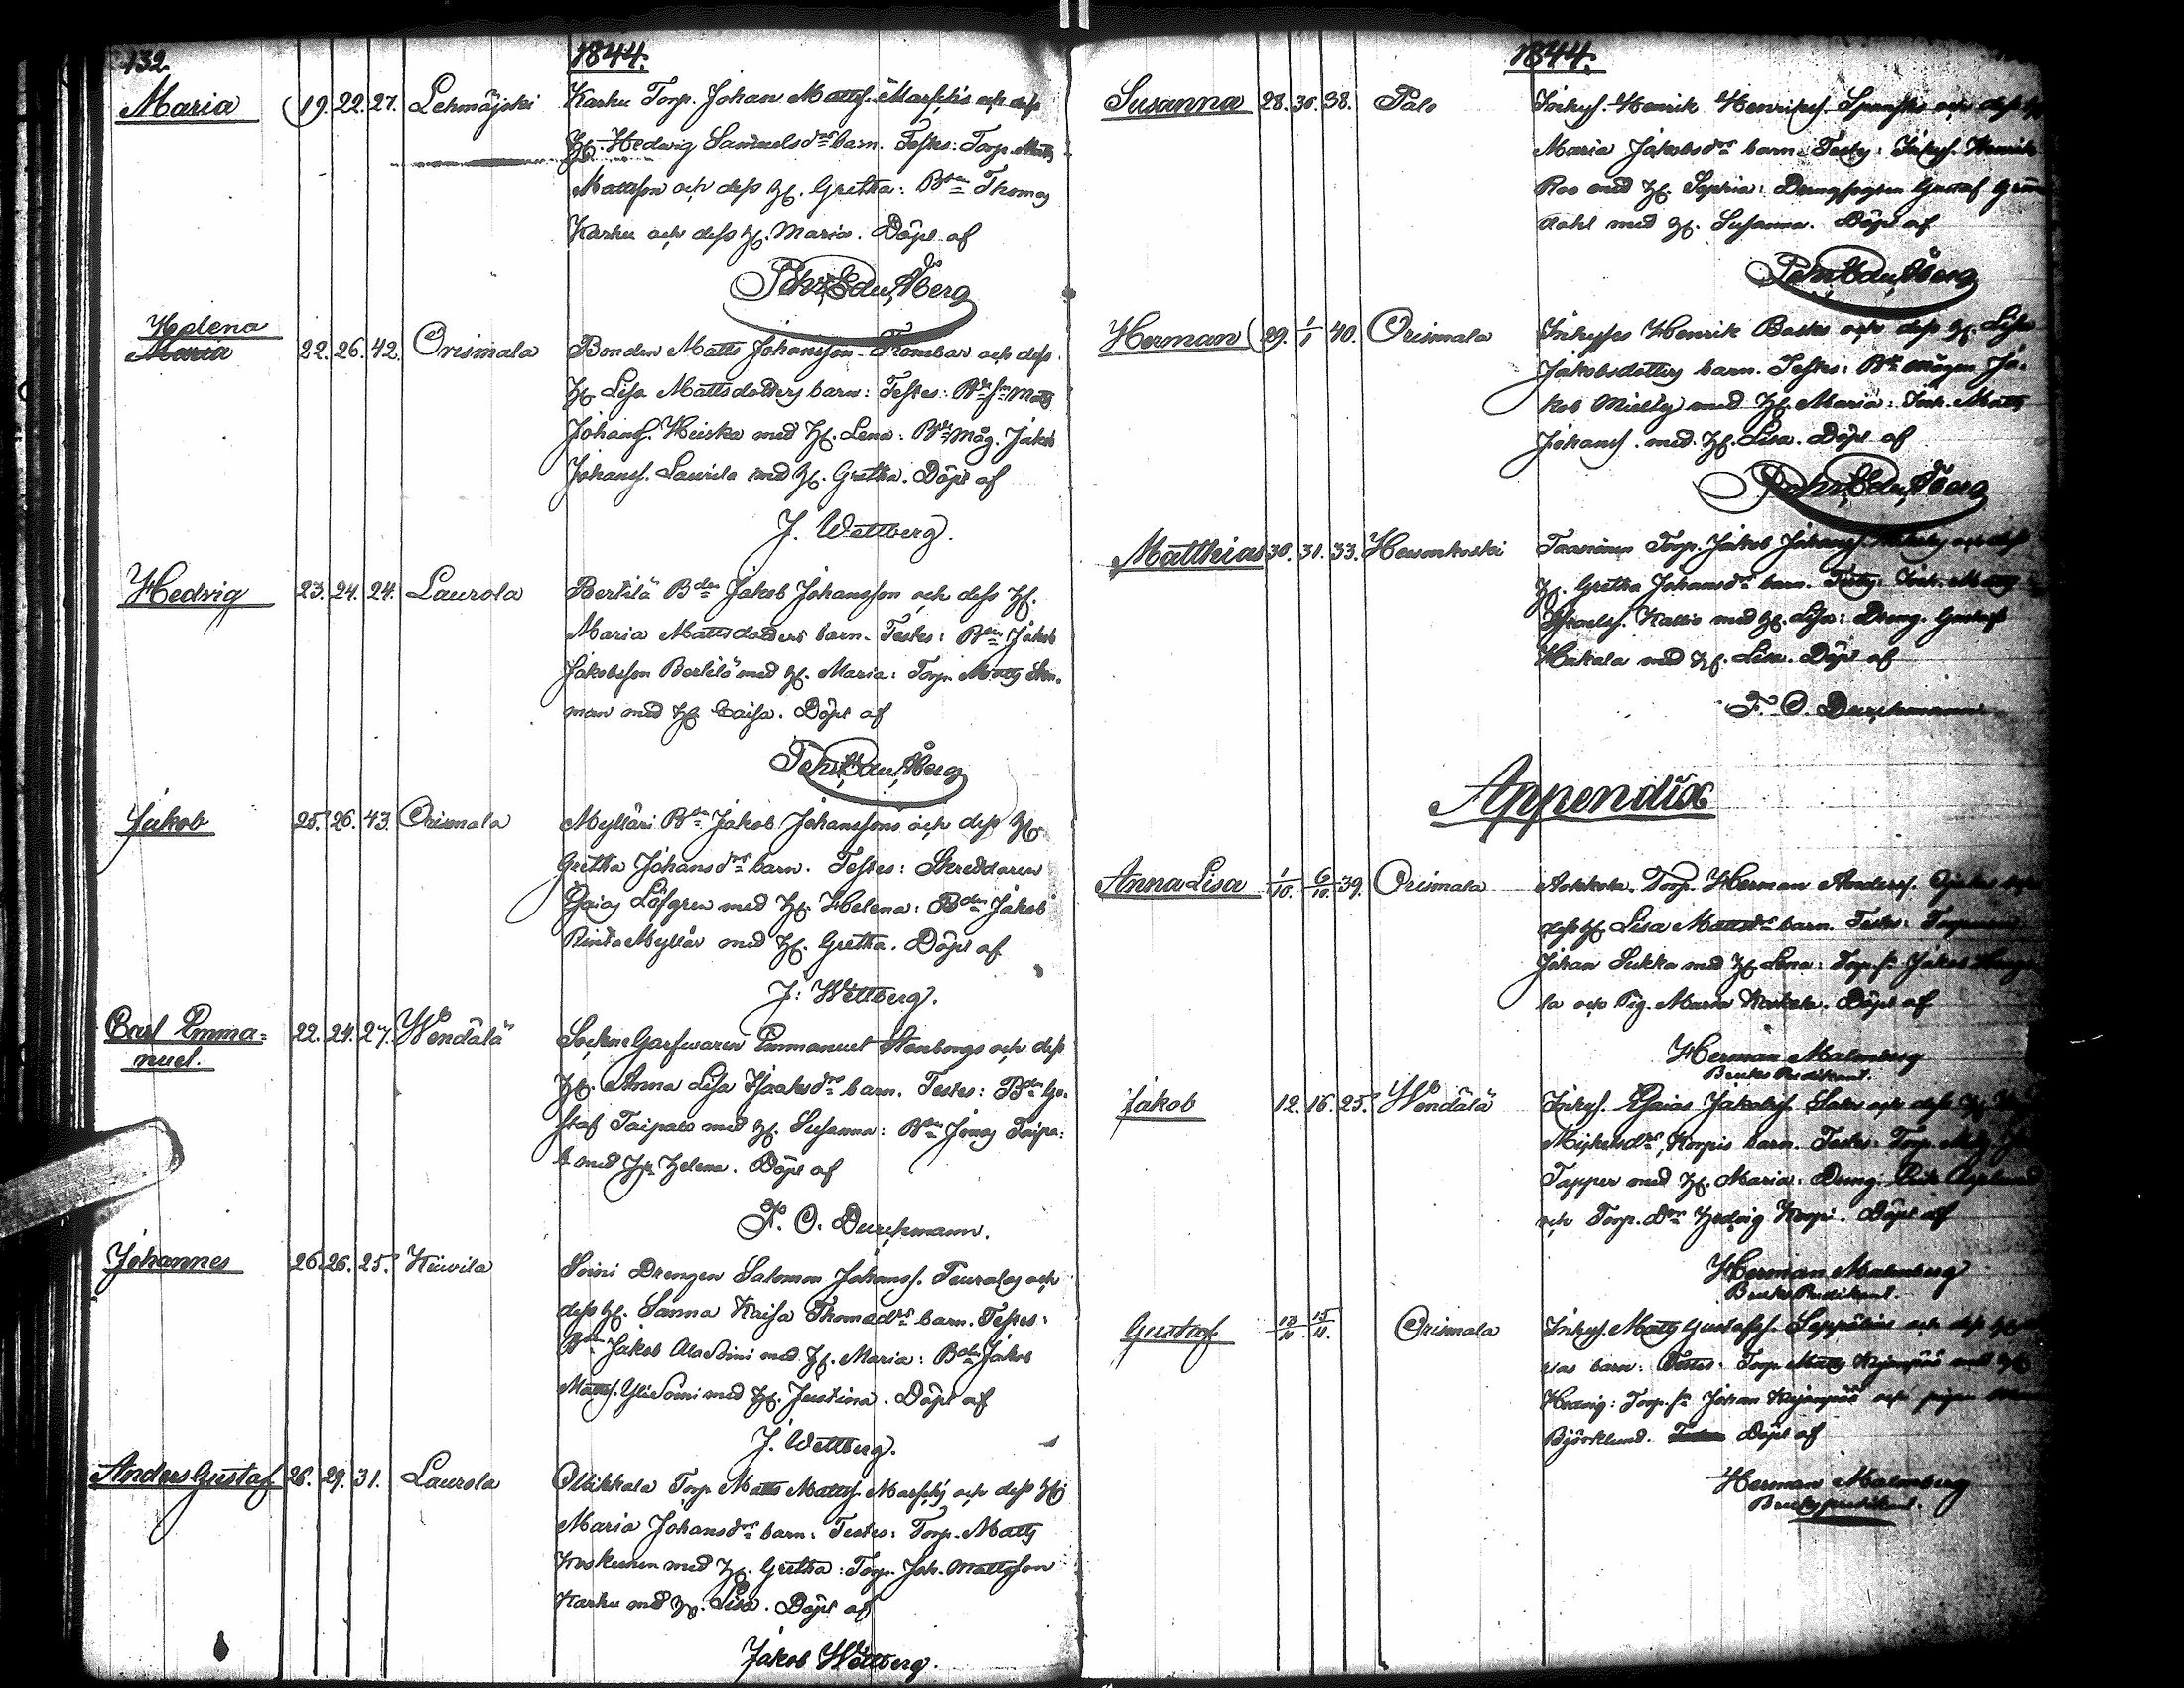 132.
1844.
Maria 19. 22. 27. Lehmäjoki Karhu Torp. Johan Matts. och dess
H. Hedwig Samuelsdr barn. Testes: Torp. Matts
Mattsson och dess H. Gretha: Bden Thomas
Karhu och dess H. Maria. Döpt af
Pehr Edu. Åberg
Helena
Maria 22. 26. 42. Orismala Bonden Matts Johansson och dess
H. Lisa Mattsdotters barn: Testes: Matts
Johans. Heiska med H. Lena: Måg. Jakob
Johans. Laurila med H. Gretha. Döpt af
J. Wettberg.
Hedvig 23. 24. 24. Laurola Bertilä Bden Jakob Johansson och dess H.
Maria Mattsdotters barn. Testes: Bden Jakob
Jakobsson Bertilä med H. Maria: Torp. Matts
man med H. Caisa. Döpt af
Pehr Edu. Åberg
Jakob 25. 26. 43. Orismala Mylläri Bden Jakob Johanssons och dess H.
Gretha Johansdr barn. Testes: Skreddaren
Esaias Löfgren med H. Helena: Bden Jakob
Rinta Myllär med H. Gretha. Döpt af
J. Wettberg.
Carl Emma=
nuel. 22. 24. 27. Wendälä Sockne Garfwaren Emmanuel Stenbergs och dess
H. Anna Lisa Isaksdr barn. Testes: Bden Gu-
staf Taipale med H. Susanna: Bden Jonas Taipa-
le med H. Helena. Döpt af
F. O. Durchmann.
Johannes 26. 26. 25. Heuvila Soini Drengen Salomon Johans. och
dess H. Sanna Kaisa Thomadr barn. Testes:
Bden Jakob Ala Soini med H. Maria: Bden Jakob
Matts. Yli Soini med H. Justina. Döpt af
J. Wettberg.
Anders Gustaf 26. 29. 31. Laurola Ollikkala Torp. Matts Matts. och dess H.
Maria Johansdr barn: Testes: Torp. Matts
Koskinen med H. Gretha: Torp. Joh. Mattsson
Karhu med H. Lisa. Döpt af
Jakob Wettberg.
1844.
Susanna 28. 30. 38. Palo Inhys. Henrik Henriks. och dess H.
Maria Jakobsdr barn. Testes: Inhys. Henrik
Roo med H. Sophia: Gustaf Grön
dahl med H. Susanna. Döpt af
Pehr Edu. Åberg
Herman 29. 1/1 40. Orismala Inhyses Henrik Backs och dess H. Lisa
Jakobsdotters barn. Testes: Mågen Ja-
kob med H. Maria: Inh. Matts
Johans. med H. Lisa. Döpt af
Pehr Edu. Åberg
Matthias 30. 31. 33. Heuonkoski Taaninen Torp. Jakob Johans. och dess
H. Gretha Johansdr barn. Testes: Inh.
Kallio med H. Lisa: Dreng. Gustaf
Hakala med H. Lisa. Döpt af
F. O. Durchmann
Appendix
Anna Lisa 1/10. 6/10 39. Orismala Torp. Herman Anders.
dess H. Lisa Mattsdr barn. Testes: Torparen
Johan Sukka med H. Lena: Torp. sn Jakob
la och Pig. Maria. Döpt af
Herman Malmberg
Bruks Predikant.
Jakob 12. 16. 25. Wendälä Inhys. Esaias Jakobs. och dess H.
Mickelsdr Korpis barn. Testes: Torp. Matts
Tapper med H. Maria: Dreng. Erik
och Torp. Dtr Hedvig Korpi. Döpt af
Herman Malmberg
Bruks Predikant.
Gustaf 12/11 15/11. Orismala Inhys. Matts Gustafs. Seppäläs och dess H.
rias barn: Testes: Torp. Matts med H.
Hedvig: Torp. sn Johan och pigan
Björklund. Döpt af
Herman Malmberg
Brukspredikant.